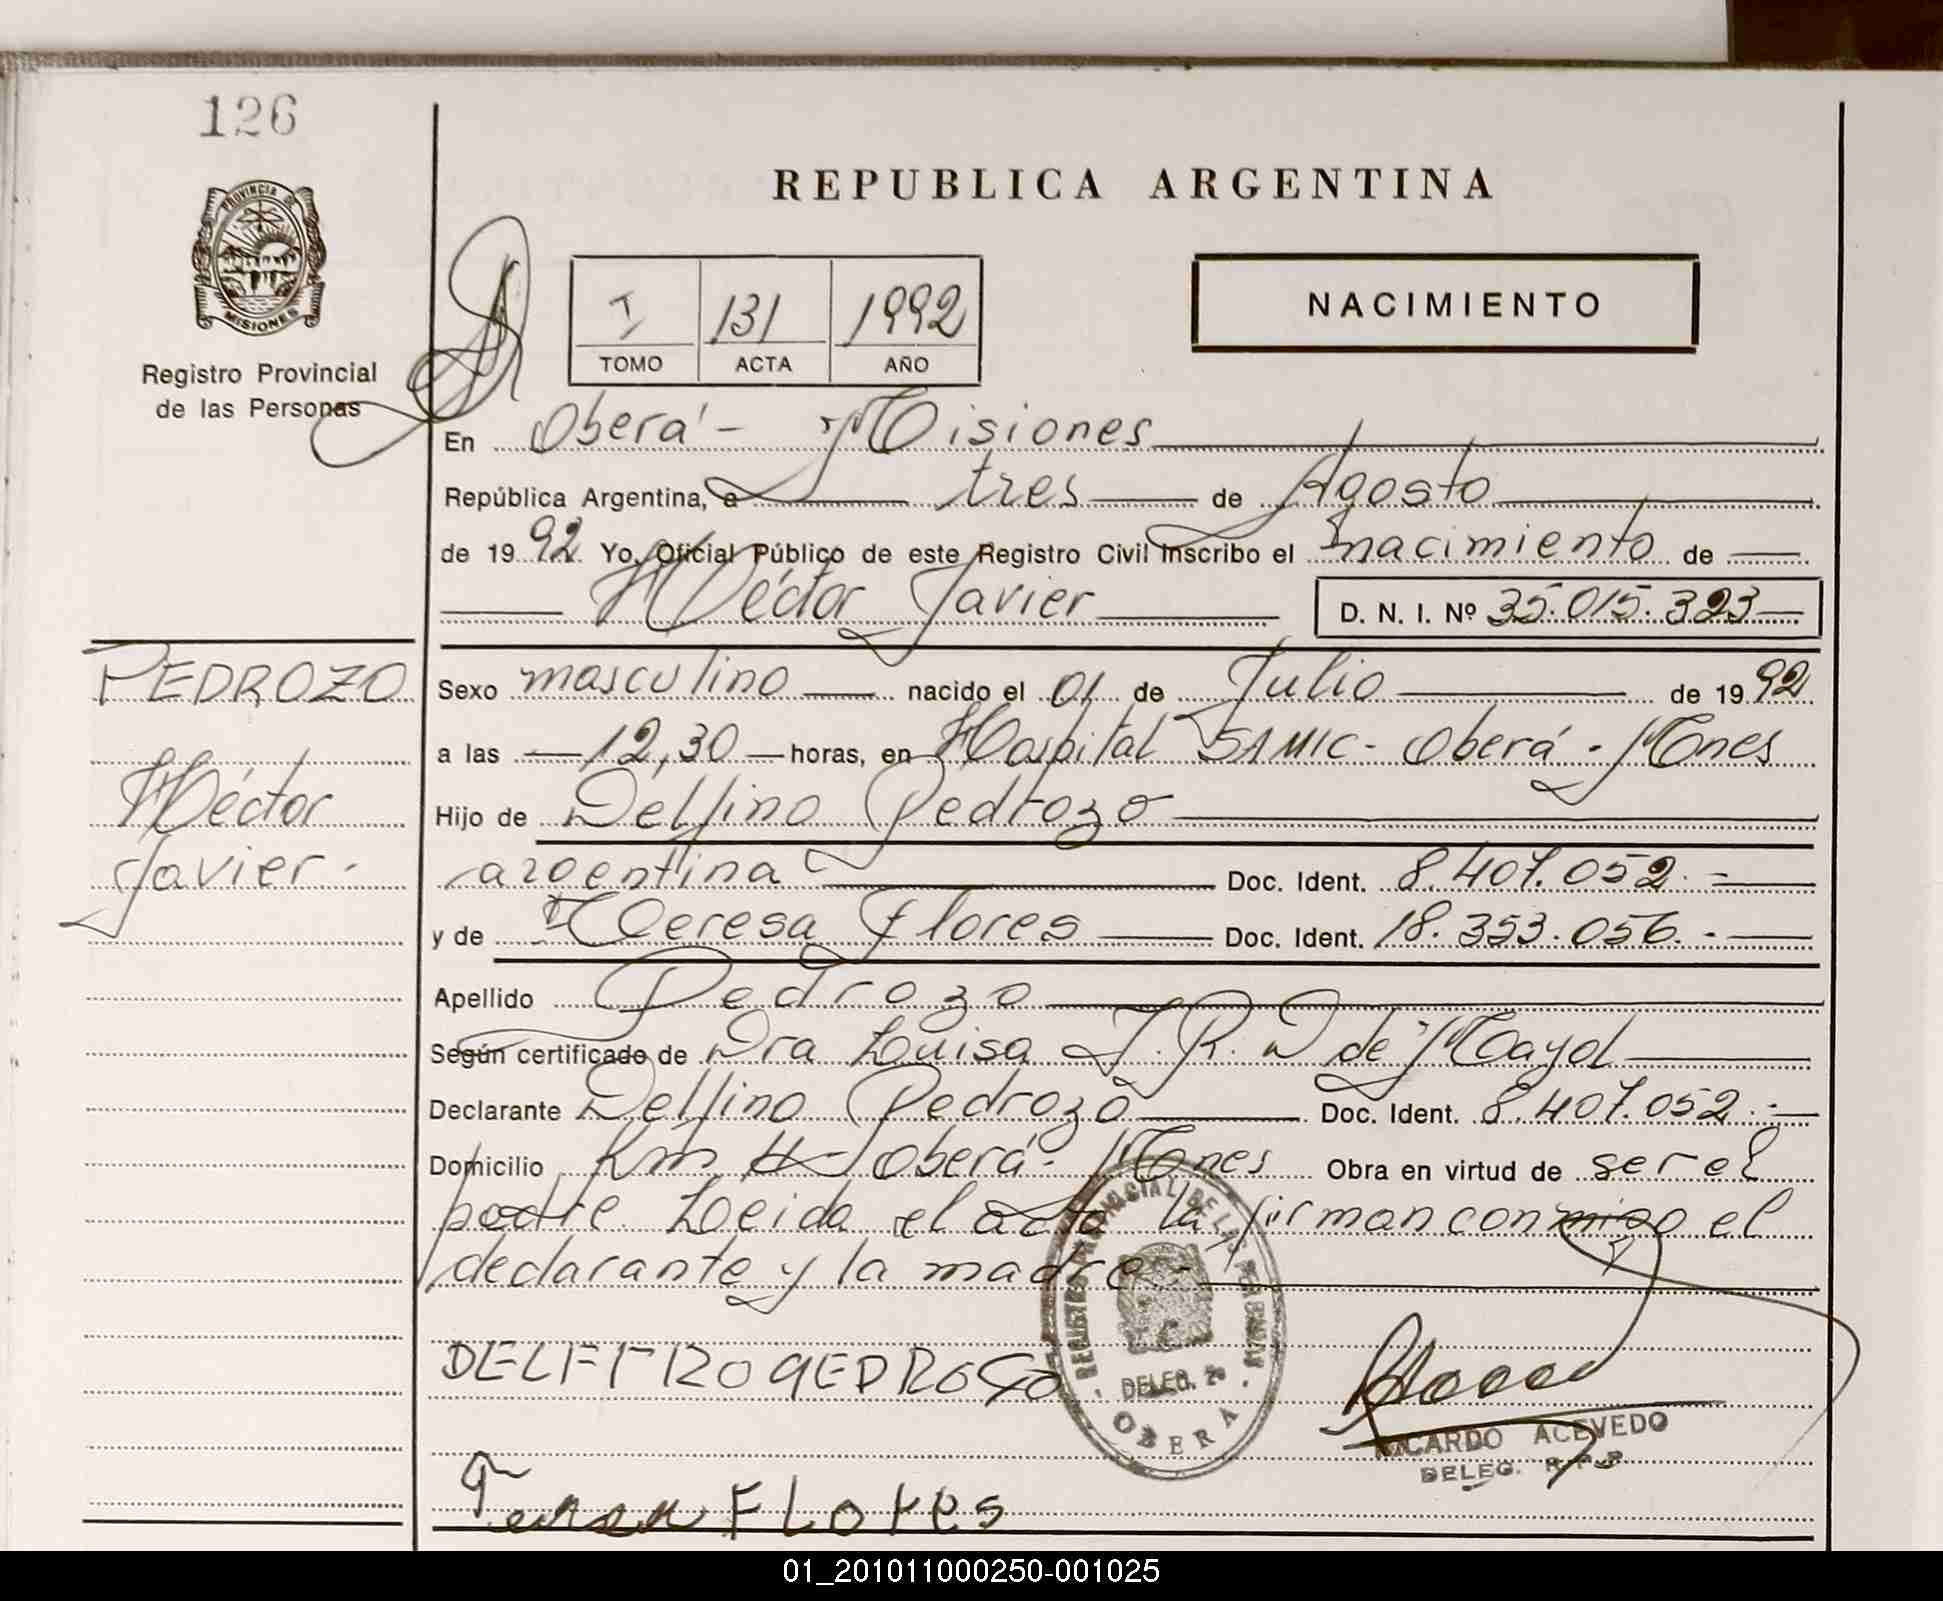 126
REPUBLICA ARGENTINA
PROVINCIA DE
MISIONES
Registro Provincial
de las Personas
I 131 1992
TOMO ACTA AÑO
NACIMIENTO
En Oberá - Misiones
República Argentina, a tres de Agosto
de 1992 Yo, Oficial Público de este Registro Civil Inscribo el nacimiento de
Héctor Javier D. N. I. Nº 35.015.323
PEDROZO
Héctor
Javier.-
Sexo masculino nacido el 01 de Julio de 1992
a las 12,30 horas, en Hospital SAMIC - Oberá - Mones
Hijo de Delfino Pedrozo
argentina Doc. Ident. 8.407.052.-
y de Teresa Flores Doc. Ident. 18.353.056.-
Apellido Pedrozo
Según certificado de Dra Luisa J. R. D de Mayol
Declarante Delfino Pedrozo Doc. Ident. 8.407.052.-
Domicilio Km 4 - Oberá - Mones Obra en virtud de ser el
padre. Leida el acta la firman conmigo el
declarante y la madre.-
REGISTRO PROVINCIAL DE LAS PERSONAS
DELEG.
OBERA
DELFI
RICARDO ACEVEDO
DELEG. R.P.P.
FLores
01_201011000250-001025